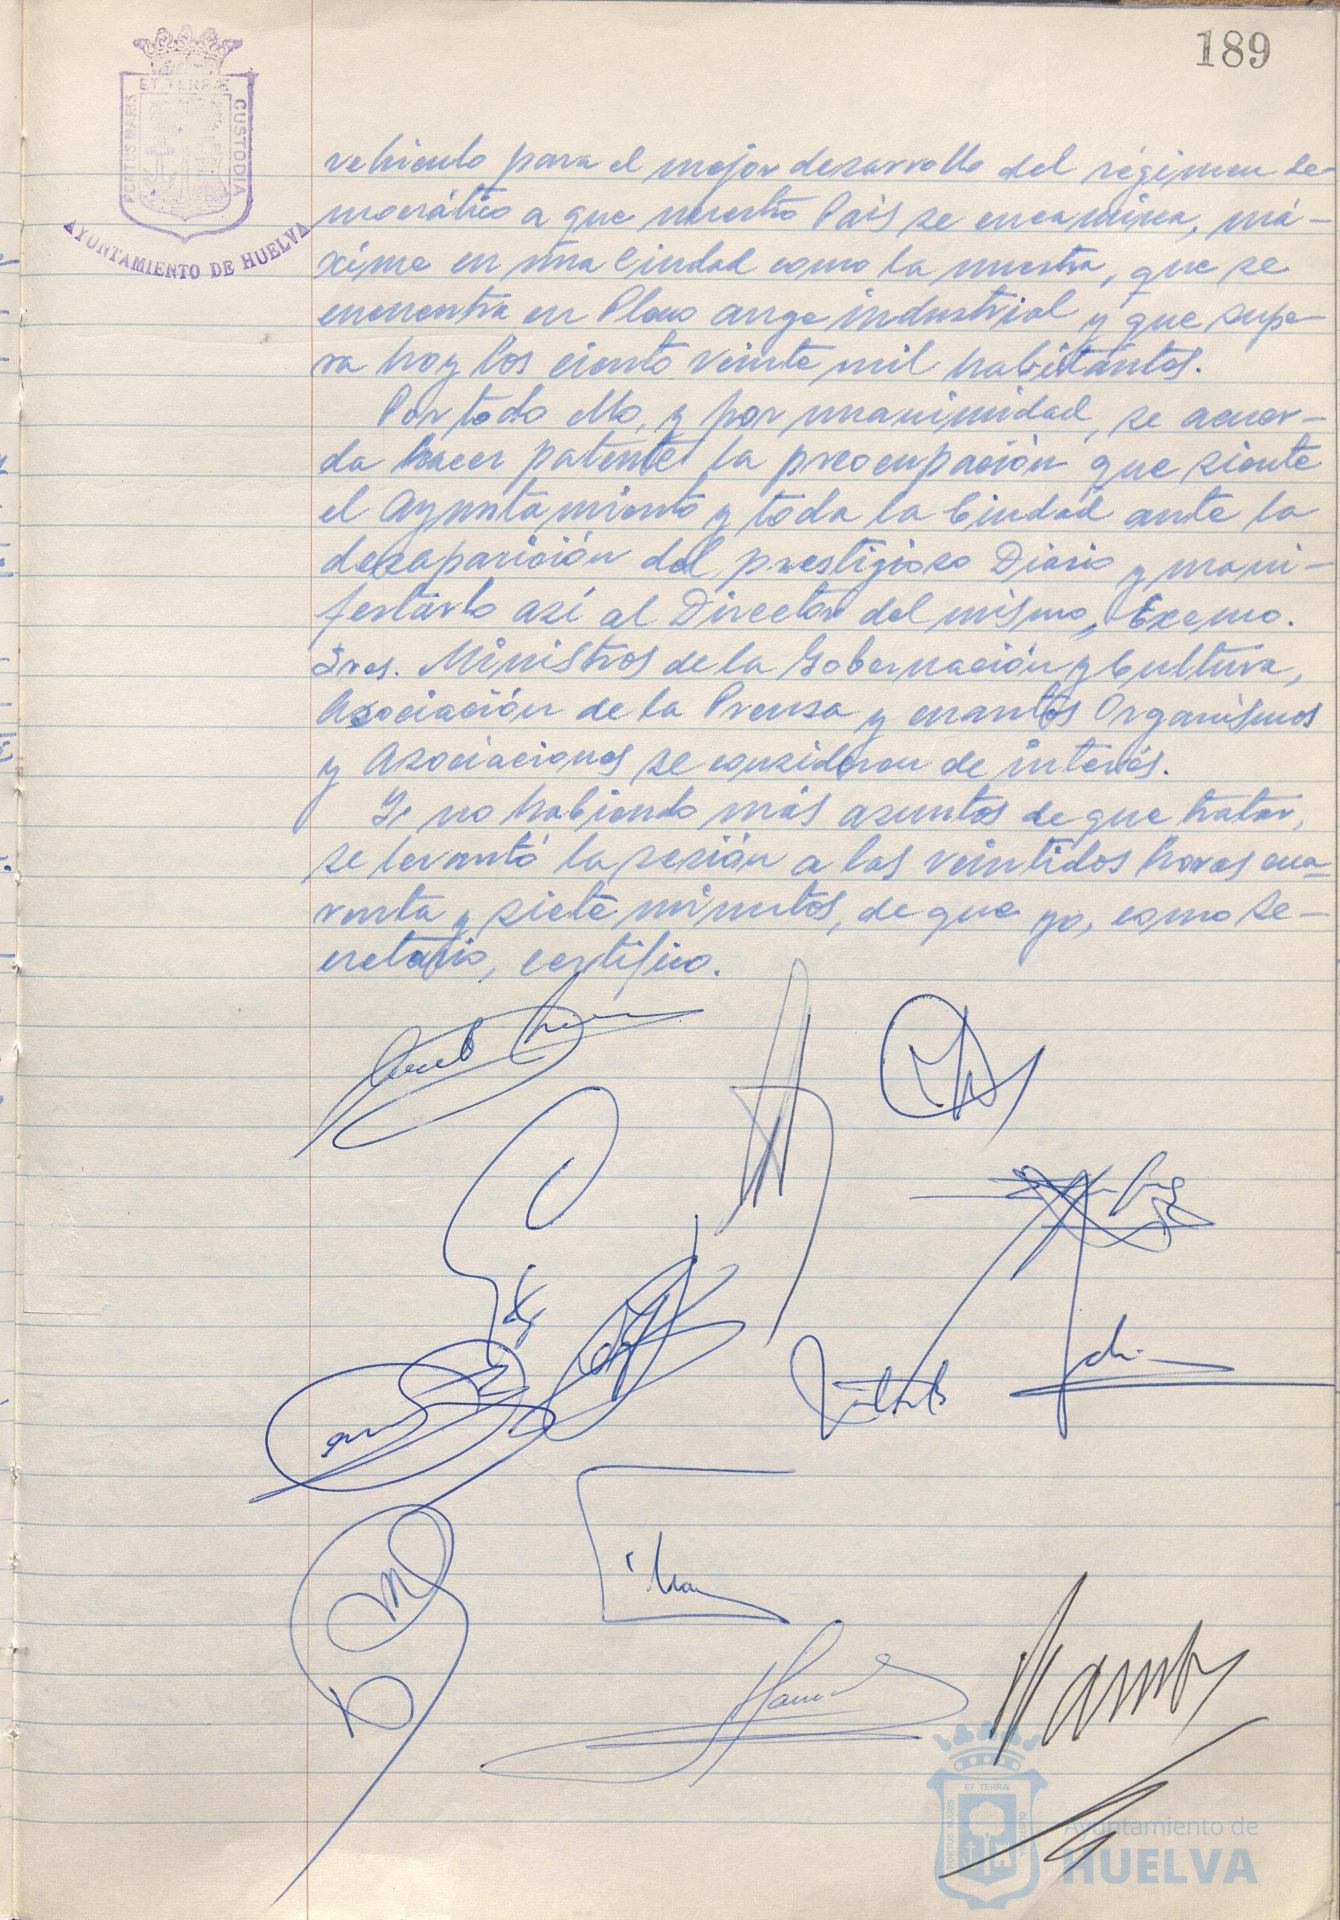 189
PORTUS MARIS ET TERRÆ CUSTODIA
AYUNTAMIENTO DE HUELVA
vehículo para el mejor desarrollo del régimen de-
mocrático a que nuestro País se encamina, má-
xime en una Ciudad como la nuestra, que se
encuentra en Pleno auge industrial y que supe-
ra hoy los ciento veinte mil habitantes.
Por todo ello, y por unanimidad, se acuer-
da hacer patente la preocupación que siente
el Ayuntamiento y toda la Ciudad ante la
desaparición del prestigioso Diario y mani-
festarlo así al Director del mismo, Excmo.
Sres. Ministros de la Gobernación y Cultura,
Asociación de la Prensa y cuantos Organismos
y Asociaciones se consideran de interés.
Y no habiendo más asuntos de que tratar,
se levantó la sesión a las veintidos horas cua-
renta y siete minutos, de que yo, como Se-
cretario, certifico.
PORTUS MARIS ET TERRÆ CUSTODIA
Ayuntamiento de
HUELVA